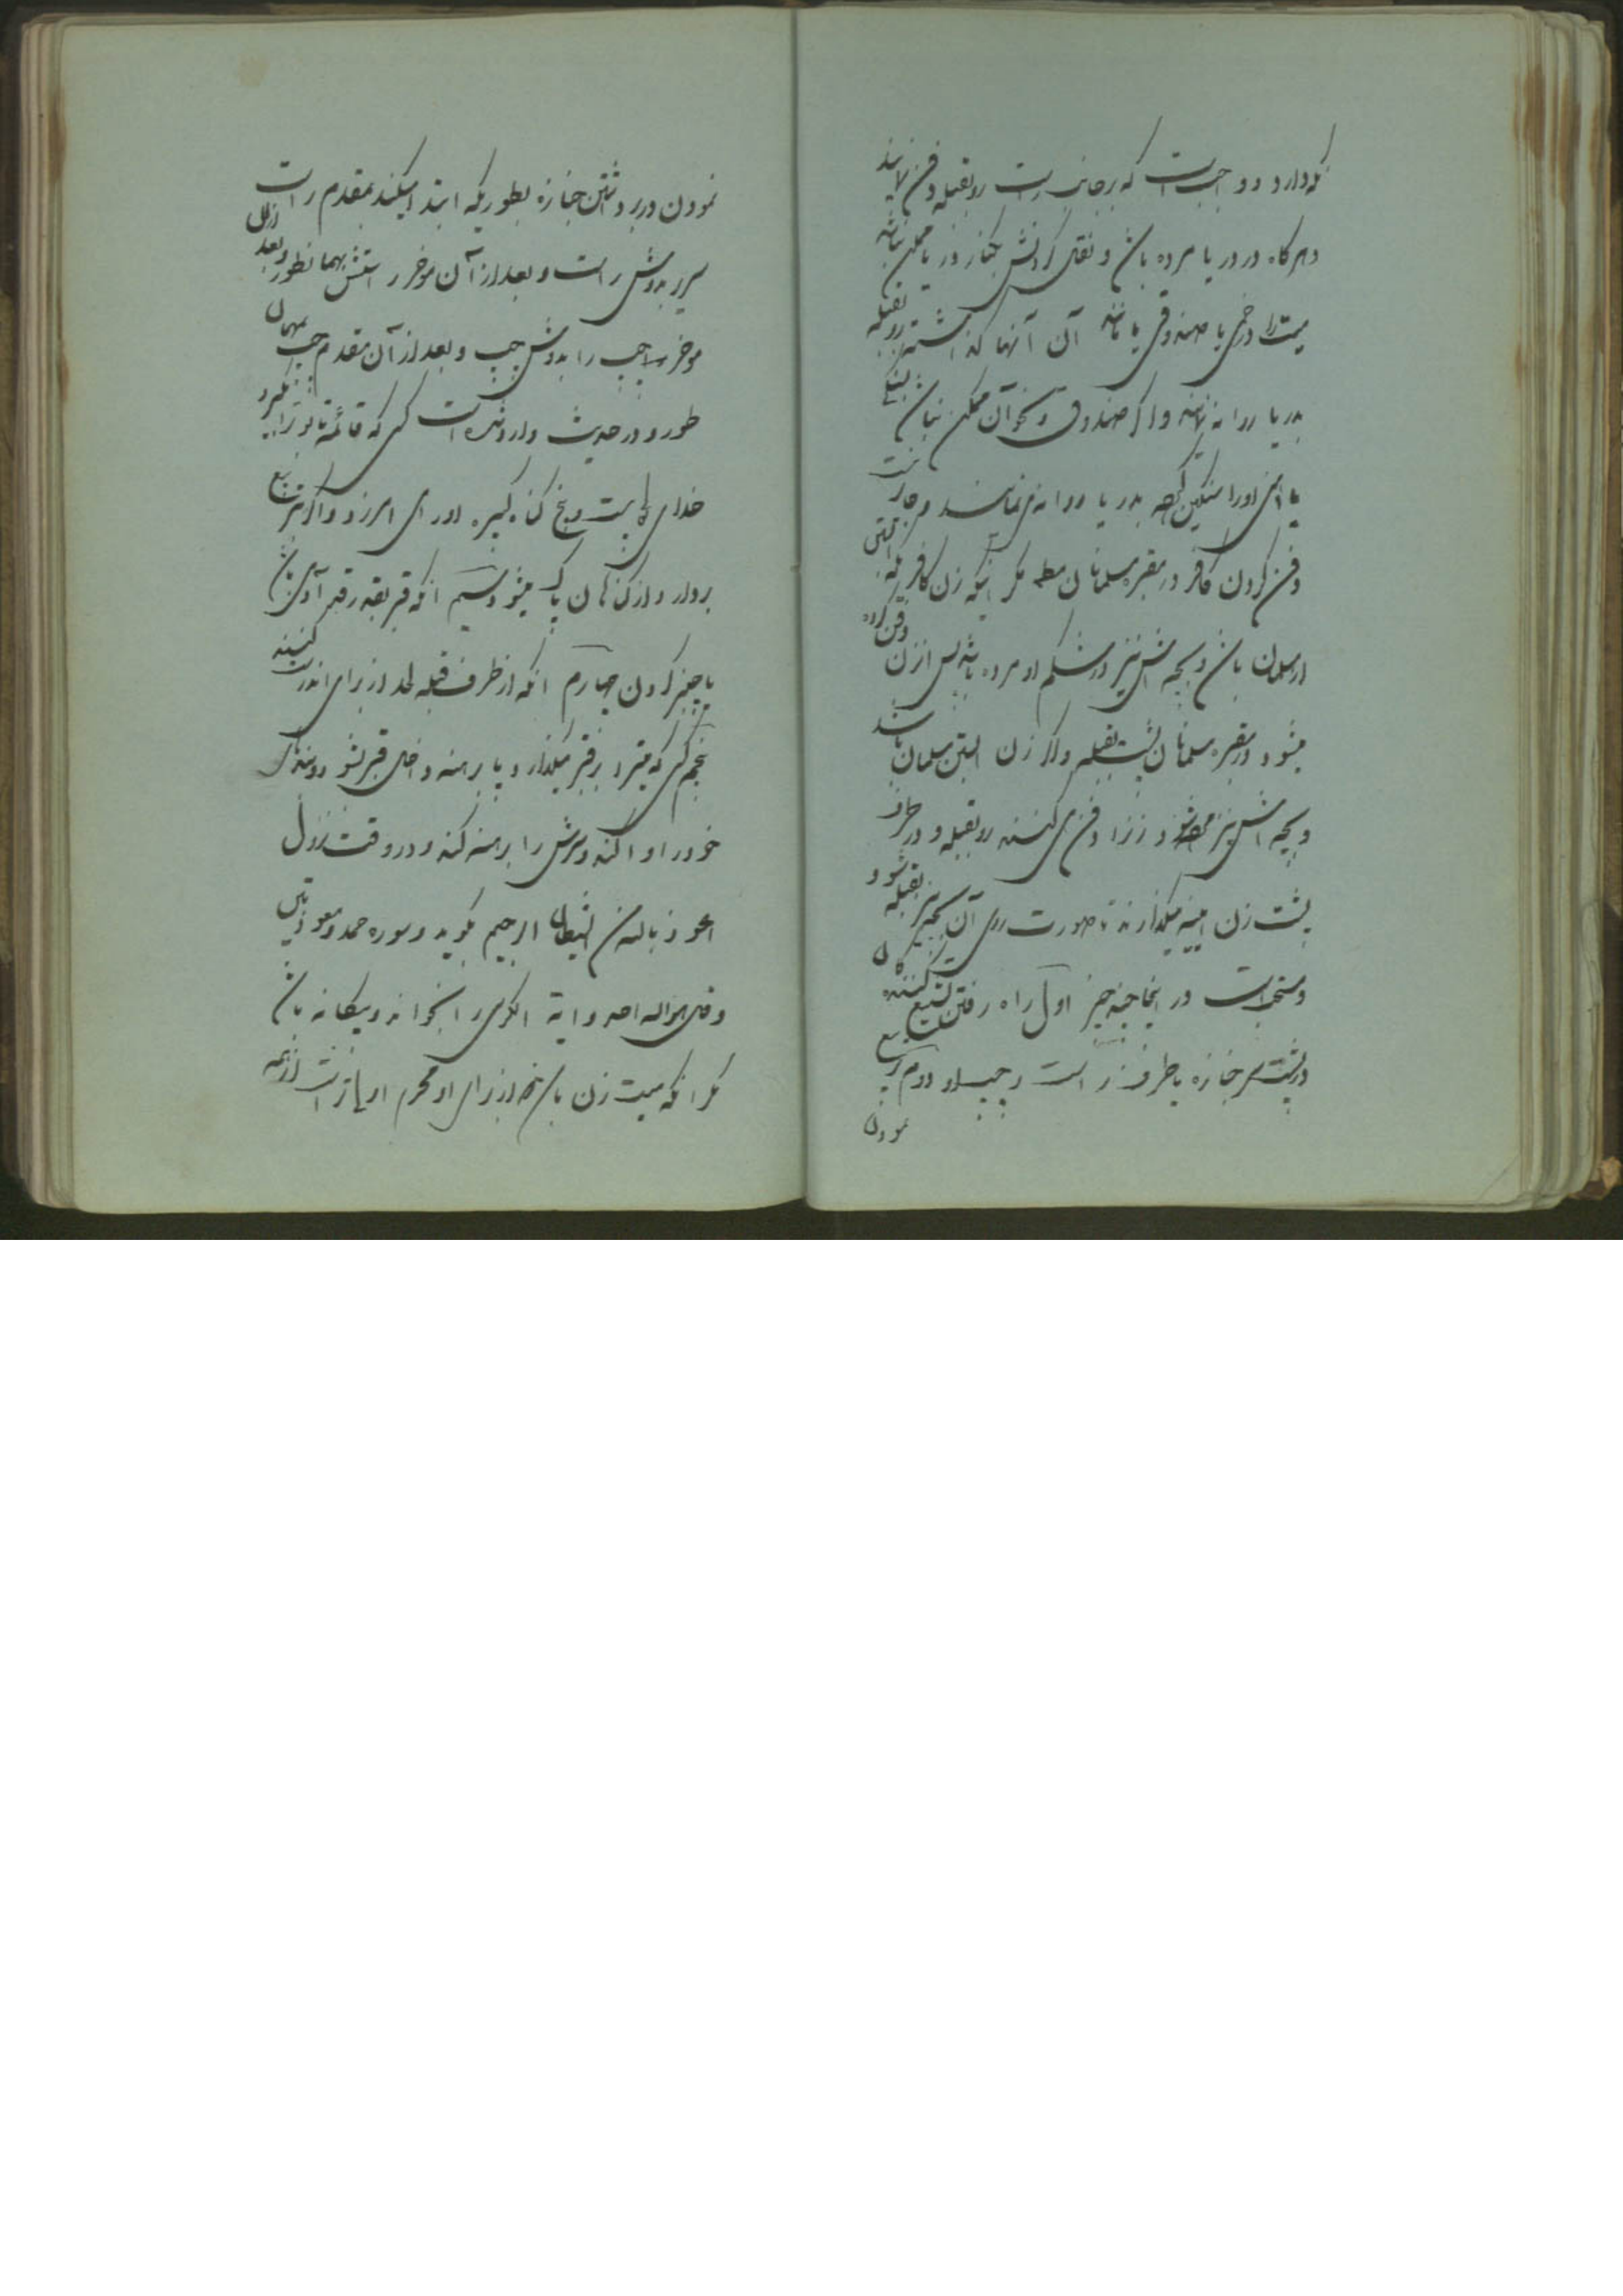 نکه دارد و واجب است که بر جانب راست رو بقبله دفن نمایند
و هرکاه در دریا مرده باشد و نقل کردنش بکنار دریا ممکن نباشد
میت را در خمی یا صندوقی یا مانند آن آنها کذاشته رو بقبله
بدریا روانه نمایند و اکر صندوق و نحو آن ممکن نباشد
پای اورا سنکین کرده بدریا روانه می نمایند و جایز نیست
دفن کردن کافر در مقبره مسلمانان مکر اینکه زن کافره آبستنی
از مسلمان باشد و بچه اش نیز در شکم او مرده باشد پس آن زن دفن کرده
میشود در مقبره مسلمانان پشت بقبله و اکر زن آبستن مسلمان باشد
و بچه اش نیز و زنرا دفن می کنند رو بقبله و در طرف
پشت زن آینه میکذارند تا صورت روی آن بچه نیز بقبله شود و
و مستحب است در اینجا چند چیز اول راه رفتن تشییع کنندکان
در پشت سر جنازه یا طرف راست و چپ او دوم تربیع
نمودن
نمودن در برداشتن جنازه بطوریکه ابتدا میکند بمقدم راست
سریر بدوش راست و بعد از آن موخر راستش بهمانطور و بعد از آن
موخر چپ را بدوش چپ و بعد از آن مقدم چپ بهمان
طور و در حدیث وارد شده است کسی که قائمه تابوترا بکیرد
خدای بیست و پنج کناه کبیره اورا می آمرزد و اکر تربیع
بردارد از کناهان پاک میشود سیم آنکه قبر بقدر قد آدمی باشد
یا چنبر کردن چهارم آنکه از طرف قبله لحد از برای آن درست کنند
پنجم کسی که میت را در قبر میکذارد پا برهنه داخل قبر شود و بندهای
خود را وا کند و سرش را برهنه کند و در وقت نزول
اعوذ بالله من الشیطان الرجیم بکوید و سوره حمد و معوذتین
و قل هو الله احد و آیة الکرسی را بخواند و بیکانه باشد
مکر آنکه میت زن باشد که از برای او محرم اولی تر است از همه